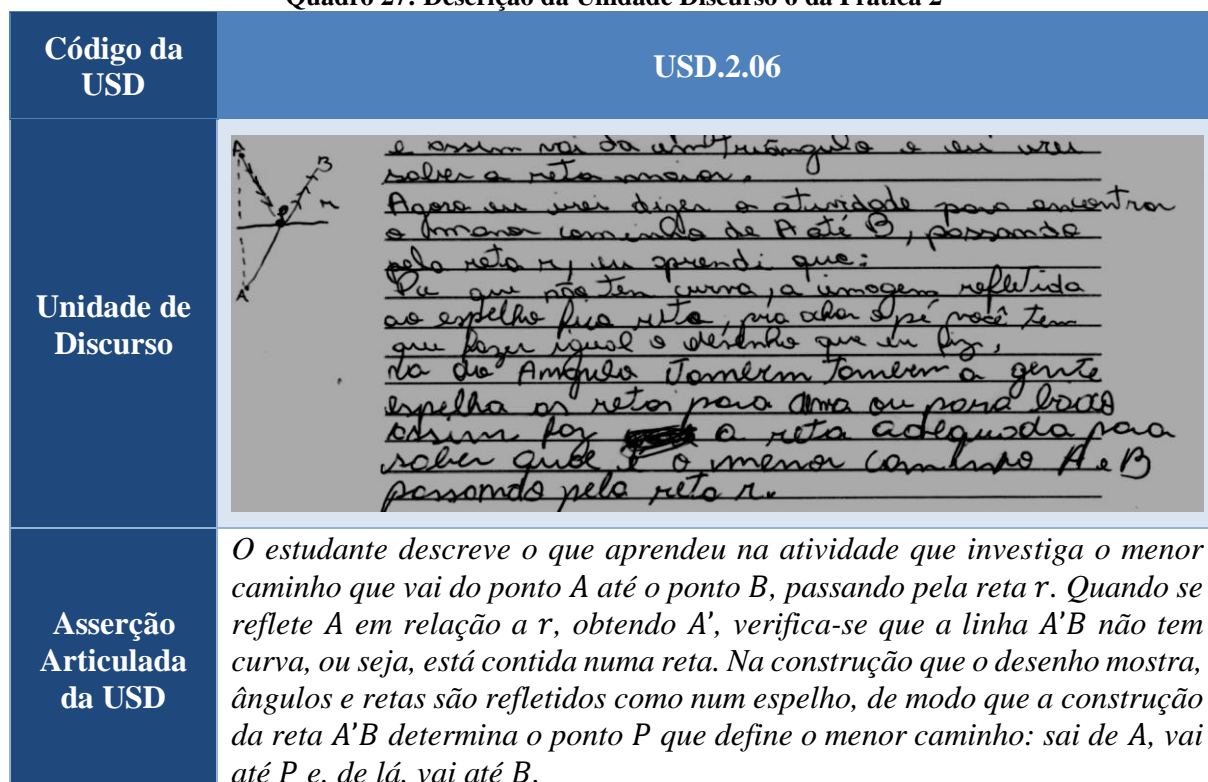 Quadro 27: Descrição da Unidade Discurso 6 da Prática 2
Código da USD
USD.2.06
Unidade de Discurso
A
B
P
r
A'
e assim vai da um triângulo e eu irei
saber a reta maior.
Agora eu irei dizer a atividade para encontrar
o menor caminho de A até B, passando
pela reta r, eu aprendi que:
que não tem curva, a imagem refletida
ao espelho fica reta, pra achar o pé você tem
que fazer igual o desenho que eu fiz,
da do Angulo Tambem a gente
espelha as retas para cima ou para baixo
assim faz a reta adequada para
saber qual é o menor caminho A e B
passando pela reta r.
Asserção Articulada da USD
O estudante descreve o que aprendeu na atividade que investiga o menor
caminho que vai do ponto A até o ponto B, passando pela reta r. Quando se
reflete A em relação a r, obtendo A’, verifica-se que a linha A’B não tem
curva, ou seja, está contida numa reta. Na construção que o desenho mostra,
ângulos e retas são refletidos como num espelho, de modo que a construção
da reta A’B determina o ponto P que define o menor caminho: sai de A, vai
até P e, de lá, vai até B.